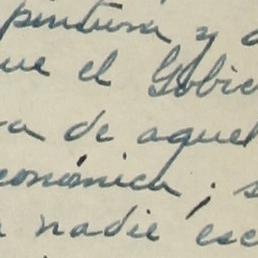 pintura y
que el Gobie
de aquel
conómica ; s
nadie esc